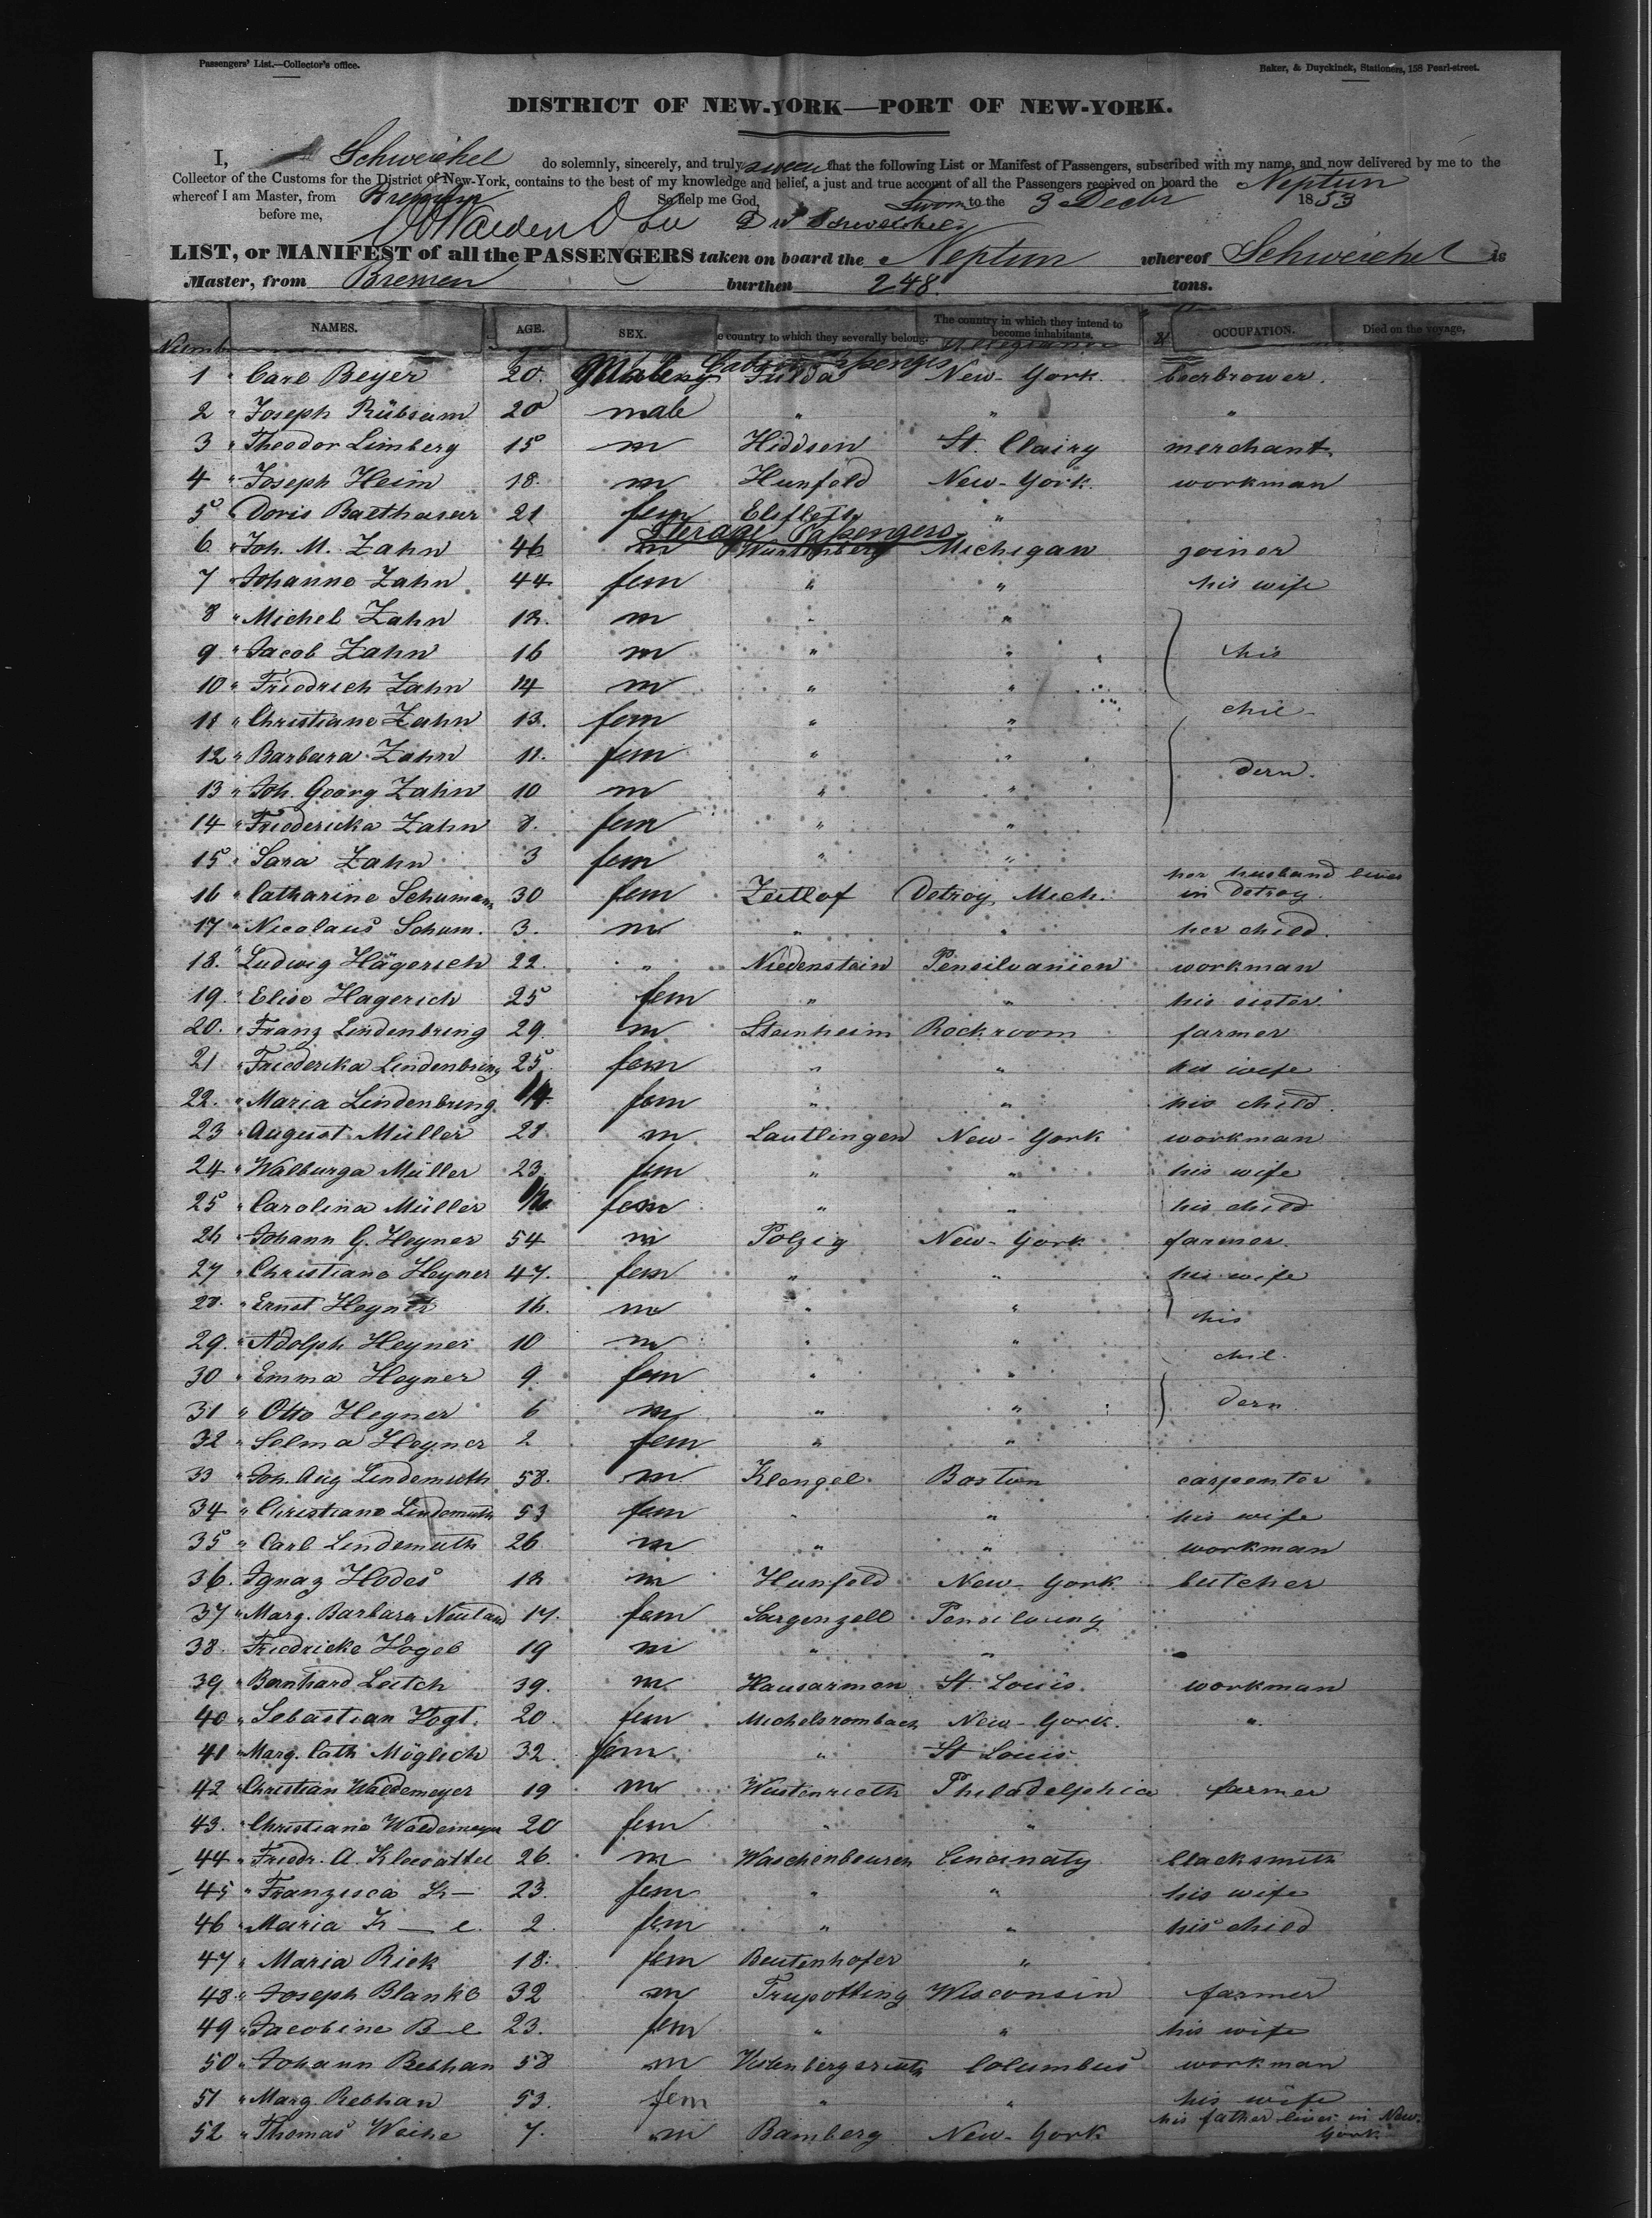 Passengers' List.—Collector's office.
Baker, & Duyckinck, Stationers, 158 Pearl-street.
DISTRICT OF NEW-YORK—PORT OF NEW-YORK.
I, Schweichel do solemnly, sincerely, and truly swear that the following List or Manifest of Passengers, subscribed with my name, and now delivered by me to the
Collector of the Customs for the District of New-York, contains to the best of my knowledge and belief, a just and true account of all the Passengers received on board the Neptun
whereof I am Master, from Bremen So help me God, Sworn to the 3 Decbr 1853
before me,
LIST, or MANIFEST of all the PASSENGERS taken on board the Neptun whereof Schweichel is
Master, from Bremen burthen 248 tons.
NAMES. AGE. SEX. e country to which they severally belong. The country in which they intend to become inhabitants. OCCUPATION. Died on the voyage,
1 " Carl Beyer 20. Fulda New-York. beerbrower.
2 " Joseph Rübsam 20 male " " "
3 " Theodor Limberg 15 m Hiddsen St. Clairy merchant.
4 " Joseph Heim 18. m Hunfeld New-York. workman
5 Doris Balthasar 21 fem Elsfleth "
Sterage Passengers
6 " Joh. M. Zahn 46 m Würtemberg Michigan joiner
7 " Johanne Zahn 44 fem " " his wife
8 " Michel Zahn 18. m " "
9 " Jacob Zahn 16 m " " his
10 " Friedrich Zahn 14 m " "
11 " Christiane Zahn 13. fem " " chil-
12 " Barbara Zahn 11. fem " " dern.
13 " Joh. Georg Zahn 10 m " "
14 " Friedericka Zahn 8. fem " "
15 " Sara Zahn 3 fem " "
16 " Catharine Schumann 30 fem Zeitlof Detroy Mich. her husband lives in Detroy.
17 " Nicolaus Schum. 3. m " " her child.
18. " Ludwig Hägerich 22. " Niedenstein Pensilvanien workman
19. " Elise Hagerich 25 fem " " his sister
20. " Franz Lindenbring 29. m Steinheim Rockroom farmer
21 " Friederika Lindenbring 25. fem " " his wife
22. " Maria Lindenbring 1/4 fem " " his child.
23 " August Müller 28 m Lautlingen New-York workman
24 " Walburga Müller 23. fem " " his wife
25 " Carolina Müller fem " " his child
26 " Johann G. Heyner 54 m Polzig New-York farmer.
27 " Christiane Heyner 47. fem " " his wife
28. " Ernst Heyner 16. m " " his
29. " Adolph Heyner 10 m " " chil-
30 " Emma Heyner 9. fem " "
31 " Otto Heyner 6 m " " dern
32 " Selma Heyner 2 fem " "
33 " Joh. Aug Lindemuth 58. m Klengel Boston carpenter
34 " Christiane Lindemuth 53 fem " " his wife
35 " Carl Lindemuth 26 m " " workman
36. Ignaz Hodes 18 m Hunfeld New-York butcher
37 " Marg. Barbara Neuland 17. fem Sargenzell
38. Friedricke Vogel 19 m " "
39 " Bernhard Leitch 39. m Hausarmen St. Louis. workman
40 " Sebastian Vogt. 20. fem Michelsrombach New-York. "
41 " Marg. Cath Möglich 32. fem " St Louis
42 " Christian Waldemeyer 19 m Wustenrieth Philadelphia farmer
43. " Christiane Waldemeyer 20 fem " "
44 " Friedr. A. Kleesattel 26. m Waschenbeuren Cincinaty blacksmith
45 " Franzisca K— 23. fem " " his wife
46 " Maria K—e. 2. fem " " his child
47 " Maria Rick 18. fem Beutenhofer "
48 " Joseph Blanke 32 m Wisconsin farmer
49 " Jacobine B—e 23. fem " " his wife
50 " Johann Rebhan 58 m Columbus workman
51 " Marg. Rebhan 53. fem " " his wife
52 " Thomas Weihe 7. m Bamberg New-York his father lives in New-York